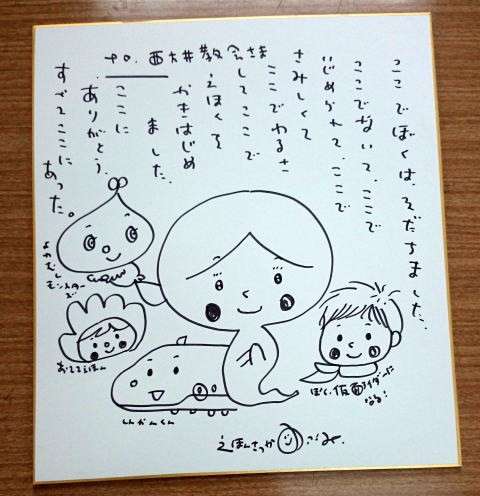 to. 西大井教会さま
ここでぼくは、そだちました。
ここでないて、ここで
いじめられて、ここで
さみしくて
ここでわるさ
してここで
えほんを
かきはじめ
ました。
ここに
ありがとう、
すべてここに
あった。
よわむし
モンスターズ
おててえほん
しんかんくん
ぼく、仮面ライダーに
なる!
えほんさっか